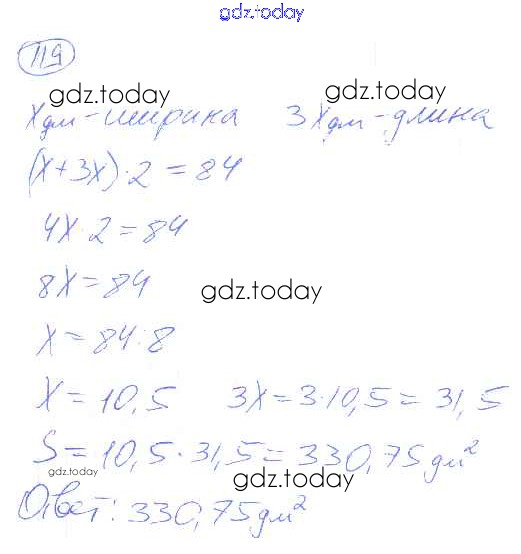 gdz.today
119
gdz.today gdz.today
x дм - ширина 3x дм - длина
(x+3x)·2=84
4x·2=84
8x=84
gdz.today
x=84:8
x=10,5 3x=3·10,5=31,5
S=10,5·31,5=330,75 дм²
gdz.today gdz.today
Ответ: 330,75 дм²
gdz.today